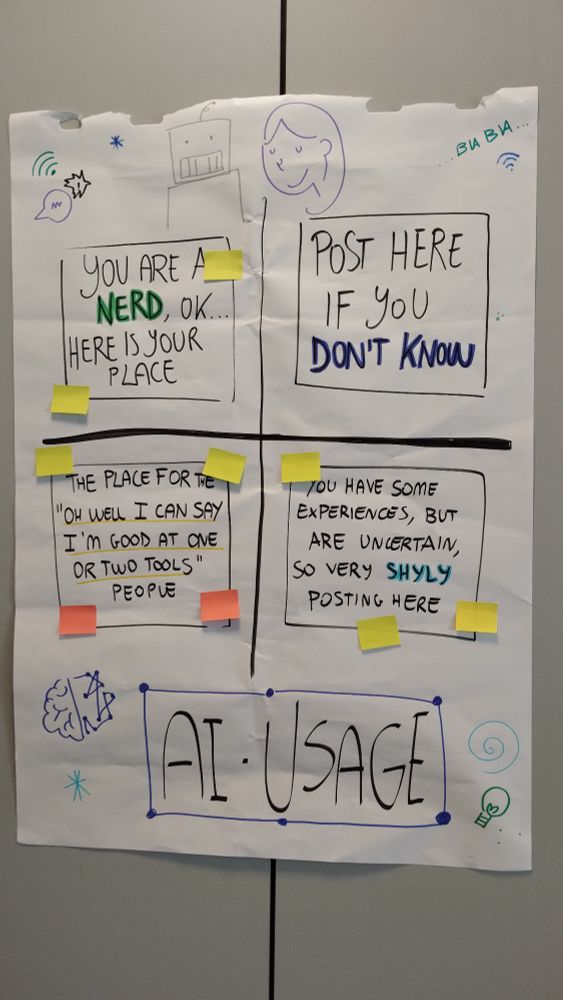 ... BLA BLA ...
YOU ARE A
NERD, OK...
HERE IS YOUR
PLACE
POST HERE
IF YOU
DON'T KNOW
THE PLACE FOR THE
"OH WELL I CAN SAY
I'M GOOD AT ONE
OR TWO TOOLS"
PEOPLE
YOU HAVE SOME
EXPERIENCES, BUT
ARE UNCERTAIN,
SO VERY SHYLY
POSTING HERE
AI · USAGE